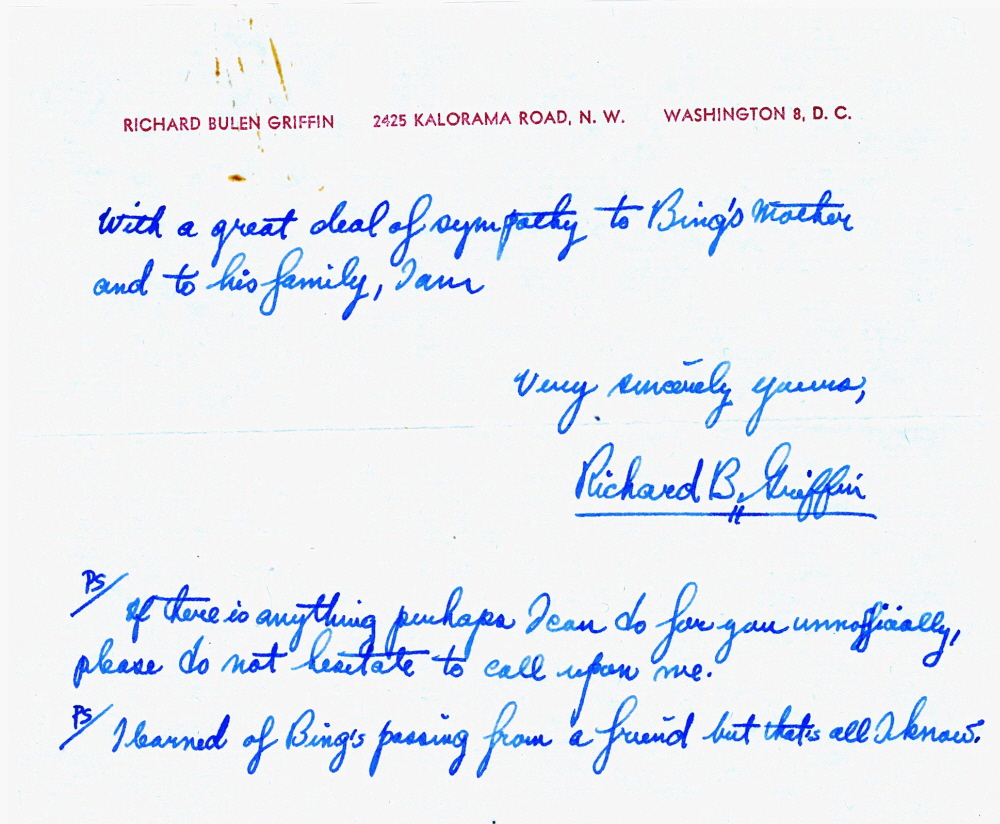 RICHARD BULEN GRIFFIN 2425 KALORAMA ROAD, N. W. WASHINGTON 8, D. C.
With a great deal of sympathy to Bing's Mother
and to his family, I am
Very sincerely yours,
Richard B. Griffin
PS/ If there is anything perhaps I can do for you unnofficially,
please do not hesitate to call upon me.
PS/ I learned of Bing's passing from a friend but that's all I know.